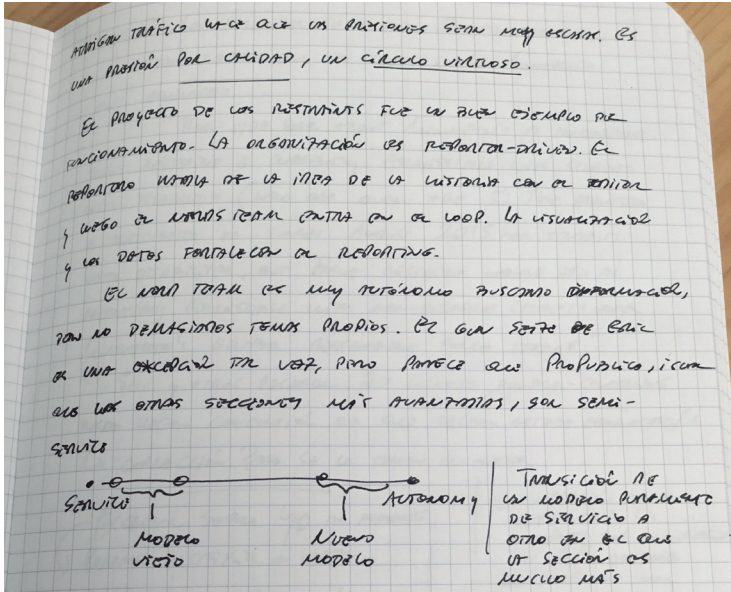 TRÁFICO HACE QUE LAS PRESIONES SEAN MUY ESCASAS. ES
UNA PRESIÓN POR CALIDAD, UN CÍRCULO VIRTUOSO.
EL PROYECTO DE LOS RESTRAINTS FUE UN BUEN EJEMPLO DE
FUNCIONAMIENTO. LA ORGANIZACIÓN ES REPORTER-DRIVEN. EL
REPORTERO HABLA DE LA IDEA DE LA HISTORIA CON EL EDITOR
Y LUEGO EL NERDS TEAM ENTRA EN EL LOOP. LA VISUALIZACIÓN
Y LOS DATOS FORTALECEN EL REPORTING.
EL NERD TEAM ES MUY AUTÓNOMO BUSCANDO INFORMACIÓN,
PERO NO DEMASIADOS TEMAS PROPIOS. EL DE ERIC
ES UNA EXCEPCIÓN TAL VEZ, PERO PARECE QUE PROPUBLICA, IGUAL
QUE LAS OTRAS SECCIONES MÁS AVANZADAS, SON SEMI-
SERVICE
SERVICE
AUTONOMY
MODELO
VIEJO
NUEVO
MODELO
TRANSICIÓN DE
UN MODELO PURAMENTE
DE SERVICIO A
OTRO EN EL QUE
LA SECCIÓN ES
MUCHO MÁS